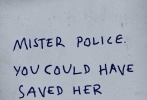 MISTER POLICE.
YOU COULD HAVE
SAVED HER